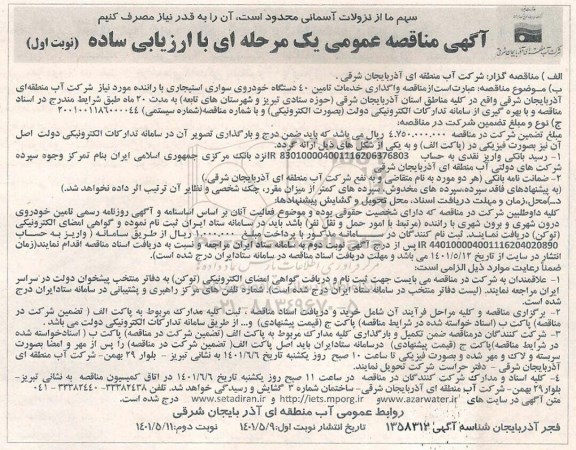 سهم ما از نزولات آسمانی محدود است، آن را به قدر نیاز مصرف کنیم
آگهی مناقصه عمومی یک مرحله ای با ارزیابی ساده (نوبت اول)
الف) مناقصه گزار: شرکت آب منطقه ای آذربایجان شرقی.
ب) موضوع مناقصه: عبارت است از مناقصه واگذاری خدمات تامین ۴۰ دستگاه خودروی سواری استیجاری با راننده مورد نیاز شرکت آب منطقه‌ای
آذربایجان شرقی واقع در کلیه مناطق استان آذربایجان شرقی (حوزه ستادی تبریز و شهرستان های تابعه) به مدت ۲۰ ماه طبق شرایط مندرج در اسناد
مناقصه و با بهره گیری از سامانه تدارکات الکترونیکی دولت (بصورت الکترونیکی) و با شماره مناقصه (شماره سیستمی) ۲۰۰۱۰۰۱۱۸۶۰۰۰۰۴۴
ج) نوع و مبلغ تضمین شرکت در مناقصه:
مبلغ تضمین شرکت در مناقصه ۴.۷۵۰.۰۰۰.۰۰۰ ریال می باشد که باید ضمن درج و بارگذاری تصویر آن در سامانه تدارکات الکترونیکی دولت اصل
آن نیز بصورت فیزیکی در (پاکت الف) و به یکی از شکل های ذیل ارائه گردد.
۱- رسید بانکی واریز نقدی به حساب IR 830100004001116206376803 نزد بانک مرکزی جمهوری اسلامی ایران بنام تمرکز وجوه سپرده
شرکت های دولتی آب منطقه ای آذربایجان شرقی
۲- ضمانت نامه بانکی (هر دو مورد به نام متقاضی و به نفع شرکت آب منطقه ای آذربایجان شرقی.)
(به پیشنهادهای فاقد سپرده، سپرده های مخدوش، سپرده های کمتر از میزان مقرر، چک شخصی و نظایر آن ترتیب اثر داده نخواهد شد.)
د- محل، زمان و مهلت دریافت اسناد، محل تحویل و گشایش پیشنهادها:
کلیه داوطلبین شرکت در مناقصه که دارای شخصیت حقوقی بوده و موضوع فعالیت آنان بر اساس اساسنامه و آگهی روزنامه رسمی تامین خودروی
درون شهری و برون شهری با راننده (مرتبط با امور حمل و نقل نفر) باشد باید در سامانه ستاد ایران ثبت نام نموده و گواهی امضای الکترونیکی
(توکن) دریافت نمایند، ثبت نام کنندگان در سامانه مذکور با پرداخت مبلغ ۱.۰۰۰.۰۰۰ ریال از طریق سامانه و واریز به حساب
IR 440100004001116204020890 پس از درج آگهی نوبت دوم به سامانه ستاد ایران مراجعه و نسبت به دریافت اسناد مناقصه اقدام نمایند (زمان
انتشار در سایت از تاریخ ۱۴۰۱/۵/۱۲ می باشد و مهلت دریافت اسناد مناقصه در سامانه ستاد ایران درج شده است).
ضمنا رعایت موارد ذیل الزامی است:
۱- علاقمندان به شرکت در مناقصه می بایست جهت ثبت نام و دریافت گواهی امضای الکترونیکی (توکن) به دفاتر منتخب پیشخوان دولت در سراسر
ایران مراجعه نمایند. (لیست دفاتر منتخب در سامانه ستاد ایران درج شده است). شماره تلفن های مرکز راهبری و پشتیبانی در سامانه ستاد ایران درج
شده است.
۲- برگزاری مناقصه و کلیه مراحل فرآیند آن شامل خرید و دریافت اسناد مناقصه، ثبت کلیه مدارک مربوط به پاکت الف (تضمین شرکت در
مناقصه) پاکت ب (اسناد خواسته شده در شرایط مناقصه) پاکت ج (قیمت پیشنهادی) و... از طریق سامانه تدارکات الکترونیکی دولت می باشد.
۳- شرکت کنندگان در مناقصه ضمن تکمیل و بارگذاری کلیه مدارک مربوط به پاکت الف (تضمین شرکت در مناقصه) پاکت ب (اسناد خواسته شده
در شرایط مناقصه) پاکت ج (قیمت پیشنهادی) در سامانه ستاد ایران باید اصل پاکت الف (تضمین شرکت در مناقصه) را پس از مهر و امضا بصورت
سربسته و لاک و مهر شده و بصورت فیزیکی تا ساعت ۱۰ صبح روز یکشنبه تاریخ ۱۴۰۱/۶/۶ به نشانی تبریز - بلوار ۲۹ بهمن- شرکت آب منطقه ای
آذربایجان شرقی - دفتر حراست شرکت تحویل نمایند.
۴- کلیه اسناد و مدارک شرکت کنندگان در مناقصه در ساعت ۱۱ صبح روز یکشنبه تاریخ ۱۴۰۱/۶/۶ در اتاق کمیسیون مناقصه به نشانی تبریز-
بلوار ۲۹ بهمن- شرکت آب منطقه ای آذربایجان شرقی- ساختمان شماره ۳ گشایش و رسیدگی خواهد شد. تلفن ۳۳۳۸۲۴۲۸-۳۳۳۸۲۴۴۰-۰۴۱
متن آگهی در سایت های www.azarwater.ir و http://iets.mporg.ir و www.setadiran.ir درج شده است.
روابط عمومی آب منطقه ای آذربایجان شرقی
فجر آذربایجان شناسه آگهی ۱۳۵۸۳۱۲ تاریخ انتشار نوبت اول: ۱۴۰۱/۵/۹ نوبت دوم: ۱۴۰۱/۵/۱۱